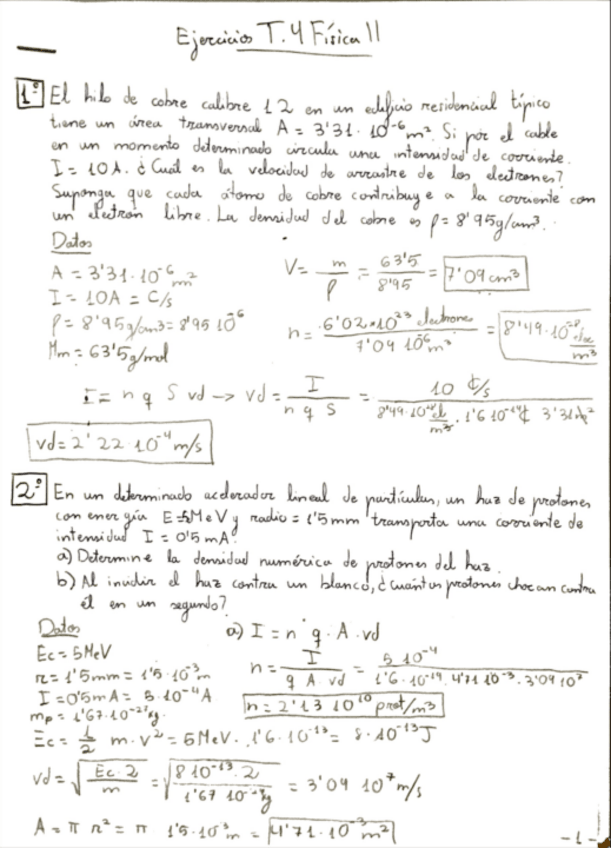 Ejercicios T.4 Física II
1º El hilo de cobre calibre 12 en un edificio residencial típico
tiene un área transversal A = 3'31·10⁻⁶ m². Si por el cable
en un momento determinado circula una intensidad de corriente.
I = 10A. ¿Cuál es la velocidad de arrastre de los electrones?
Suponga que cada átomo de cobre contribuye a la corriente con
un electrón libre. La densidad del cobre es ρ = 8'95g/cm³.
Datos
A = 3'31·10⁻⁶ m²
I = 10A = C/s
ρ = 8'95g/cm³ = 8'95 10⁻⁶
Mm = 63'5g/mol
V = m/ρ = 63'5/8'95 = 7'09 cm³
n = 6'02×10²³ electrones / 7'09 10⁻⁶ m³ = 8'49·10 elec/m³
I = n q S vd → vd = I / n q S = 10 C/s / 8'49·10 el/m³ · 1'6 10⁻¹⁹ C 3'31 m²
vd = 2'22·10⁻⁴ m/s
2º En un determinado acelerador lineal de partículas, un haz de protones
con energía E=5MeV y radio = 1'5mm transporta una corriente de
intensidad I = 0'5 mA.
a) Determine la densidad numérica de protones del haz.
b) Al incidir el haz contra un blanco, ¿cuántos protones chocan contra
él en un segundo?
Datos
Ec = 5MeV
r = 1'5mm = 1'5·10⁻³m
I = 0'5mA = 5·10⁻⁴A
mp = 1'67·10⁻²⁷kg.
a) I = n · q · A · vd
n = I / q A vd = 5 10⁻⁴ / 1'6·10⁻¹⁹ · 4'71 10⁻³ · 3'09 10⁷
n = 2'13 10¹⁰ prot/m³
Ec = 1/2 m·v² = 5MeV · 1'6·10⁻¹³ = 8·10⁻¹³J
vd = √(Ec·2 / m) = √(8 10⁻¹³·2 / 1'67 10⁻²⁷kg) = 3'09 10⁷ m/s
A = π r² = π 1'5·10⁻³m = 4'71·10⁻³ m²
-1-